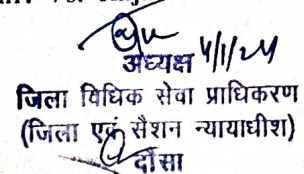 अध्यक्ष 4/1/24
जिला विधिक सेवा प्राधिकरण
(जिला एवं सैशन न्यायाधीश)
दौसा